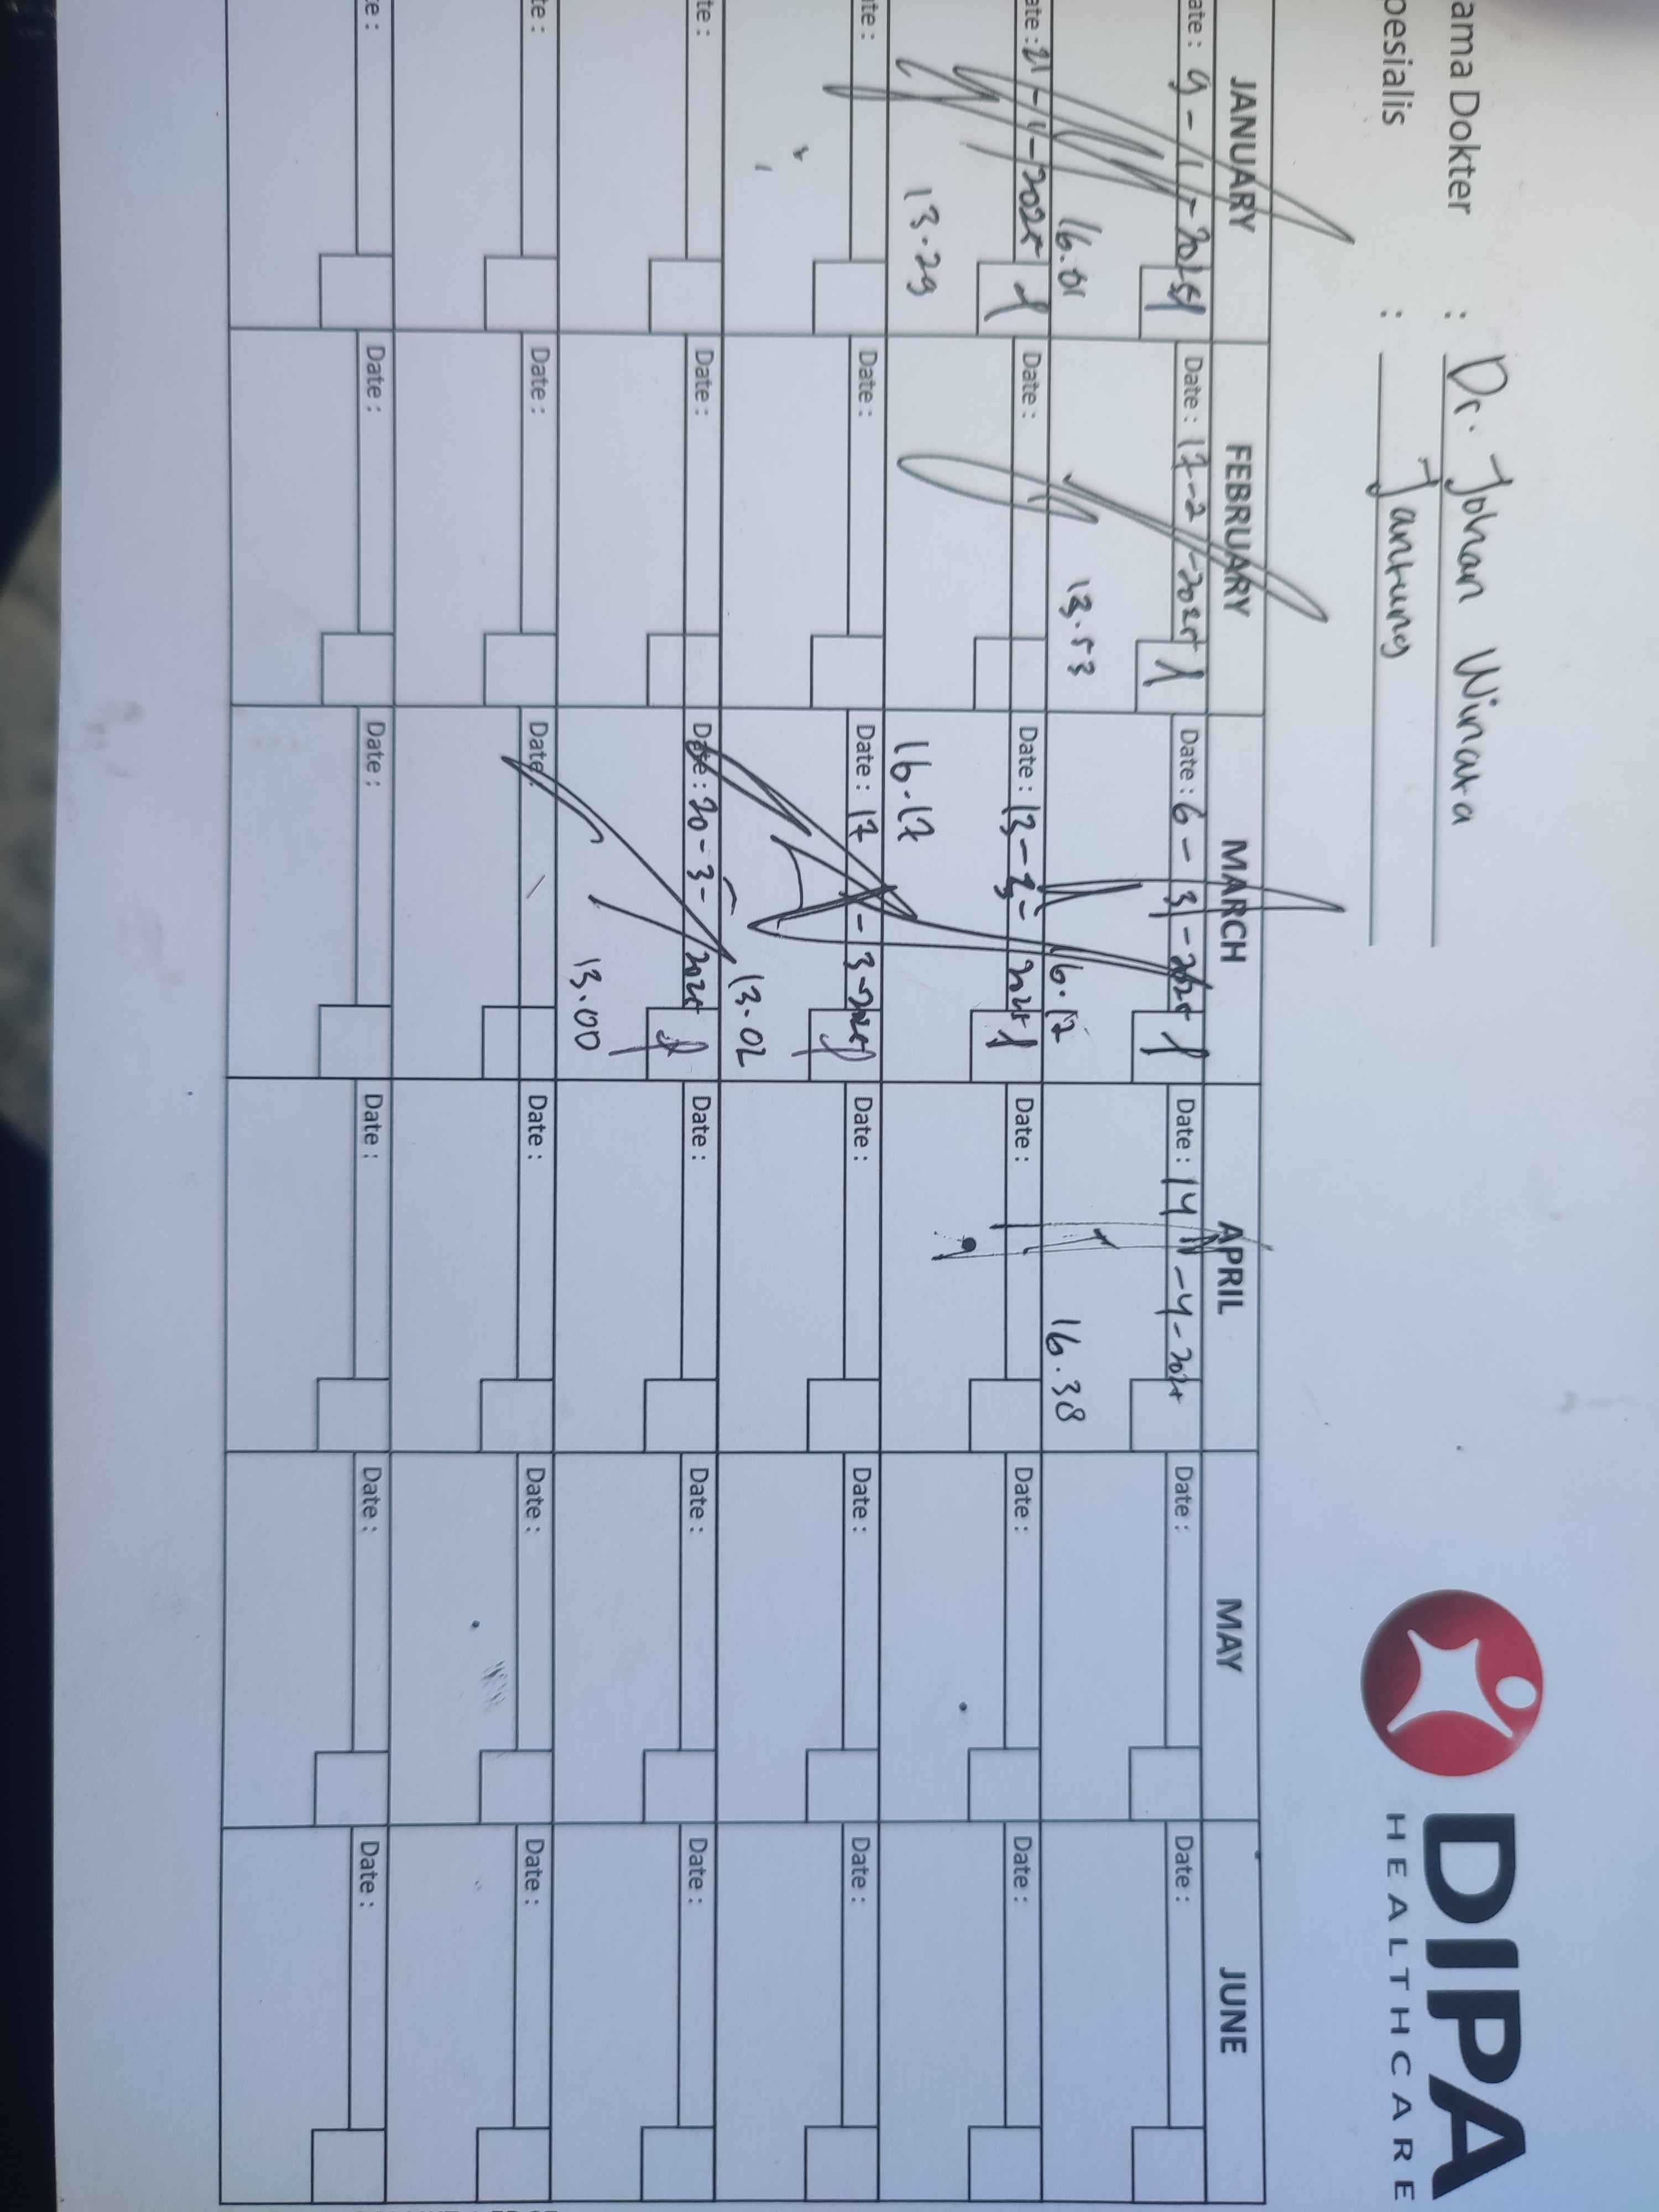 DIPA
HEALTHCARE
ama Dokter : Dr. Johan Winata
pesialis : Jantung
JANUARY FEBRUARY MARCH APRIL MAY JUNE
ate : 9-1-2025 Date : 17-2-2025 Date : 6-3-2025 Date : 14-4-2025 Date : Date :
16.01 13.53 16.17 16.38
ate : 21-1-2025 Date : Date : 13-3-2025 Date : Date : Date :
13.29 16.17
ate : Date : Date : 17-3-2025 Date : Date : Date :
13.02
te : Date : Date : 20-3-2025 Date : Date : Date :
13.00
te : Date : Date Date : Date : Date :
te : Date : Date : Date : Date : Date :